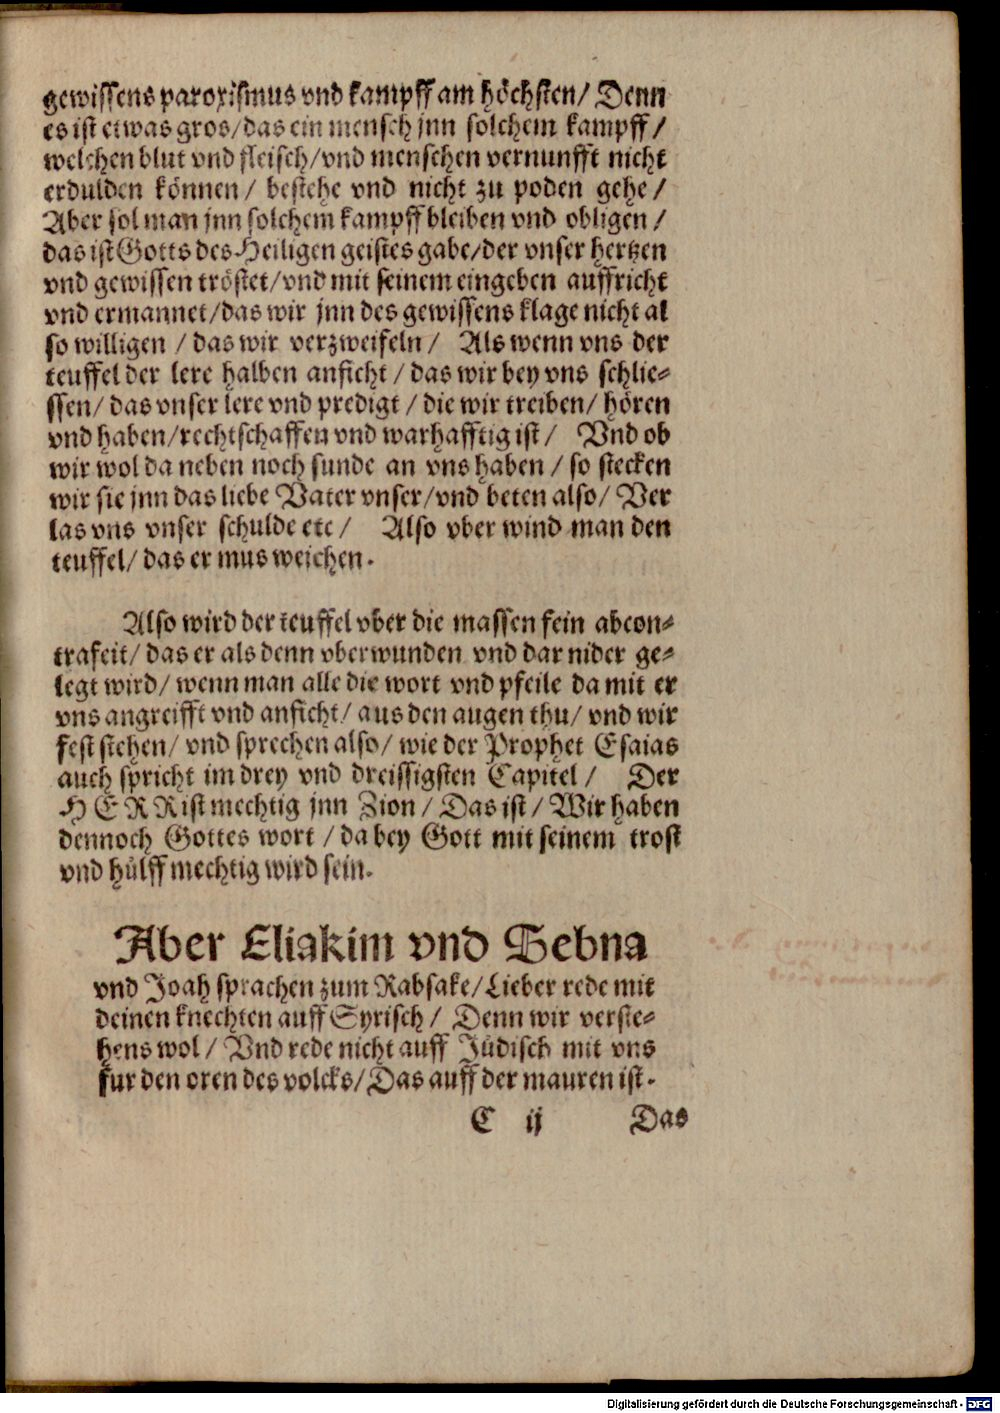 gewissens paroxismus vnd kampff am höchsten/ Denn
es ist etwas gros/das ein mensch jnn solchem kampff/
welchen blut vnd fleisch/vnd menschen vernunfft nicht
erdulden können/ bestehe vnd nicht zu poden gehe/
Aber sol man jnn solchem kampff bleiben vnd obligen/
das ist Gotts des Heiligen geistes gabe/der vnser hertzen
vnd gewissen tröstet/vnd mit seinem eingeben auffricht
vnd ermannet/das wir jnn des gewissens klage nicht al
so willigen / das wir verzweifeln/ Als wenn vns der
teuffel der lere halben anficht / das wir bey vns schlie-
ssen/ das vnser lere vnd predigt / die wir treiben/ hören
vnd haben/rechtschaffen vnd warhafftig ist/ Vnd ob
wir wol da neben noch sunde an vns haben / so stecken
wir sie jnn das liebe Vater vnser/vnd beten also/ Ver
las vns vnser schulde etc/ Also vber wind man den
teuffel/ das er mus weichen.
Also wird der teuffel vber die massen fein abcon-
trafeit/ das er als denn vberwunden vnd dar nider ge-
legt wird/ wenn man alle die wort vnd pfeile da mit er
vns angreifft vnd anficht/ aus den augen thu/ vnd wir
fest stehen/ vnd sprechen also/ wie der Prophet Esaias
auch spricht im drey vnd dreissigsten Capitel/ Der
HERR ist mechtig jnn Zion/ Das ist/ Wir haben
dennoch Gottes wort / da bey Gott mit seinem trost
vnd hülff mechtig wird sein.
Aber Eliakim vnd Sebna
vnd Joah sprachen zum Rabsake/Lieber rede mit
deinen knechten auff Syrisch/ Denn wir verste-
hens wol/ Vnd rede nicht auff Jüdisch mit vns
fur den oren des volcks/Das auff der mauren ist.
C ij Das
Digitalisierung gefördert durch die Deutsche Forschungsgemeinschaft - DFG